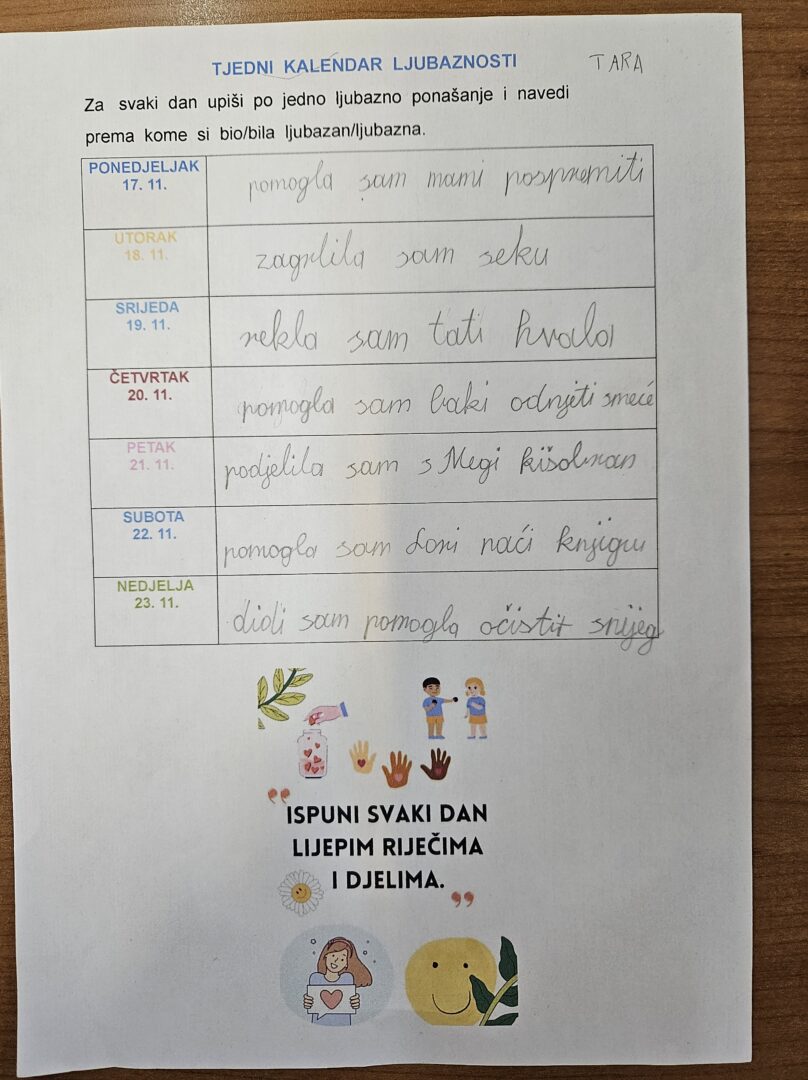 TJEDNI KALENDAR LJUBAZNOSTI TARA
Za svaki dan upiši po jedno ljubazno ponašanje i navedi
prema kome si bio/bila ljubazan/ljubazna.
PONEDJELJAK
17. 11.
pomogla sam mami pospremiti
UTORAK
18. 11.
zagrlila sam seku
SRIJEDA
19. 11.
rekla sam tati hvala
ČETVRTAK
20. 11.
pomogla sam baki odnjeti smeće
PETAK
21. 11.
podjelila sam s Megi kišobran
SUBOTA
22. 11.
pomogla sam Loni naći knjigu
NEDJELJA
23. 11.
didi sam pomogla očistit snijeg
"ISPUNI SVAKI DAN
LIJEPIM RIJEČIMA
I DJELIMA."